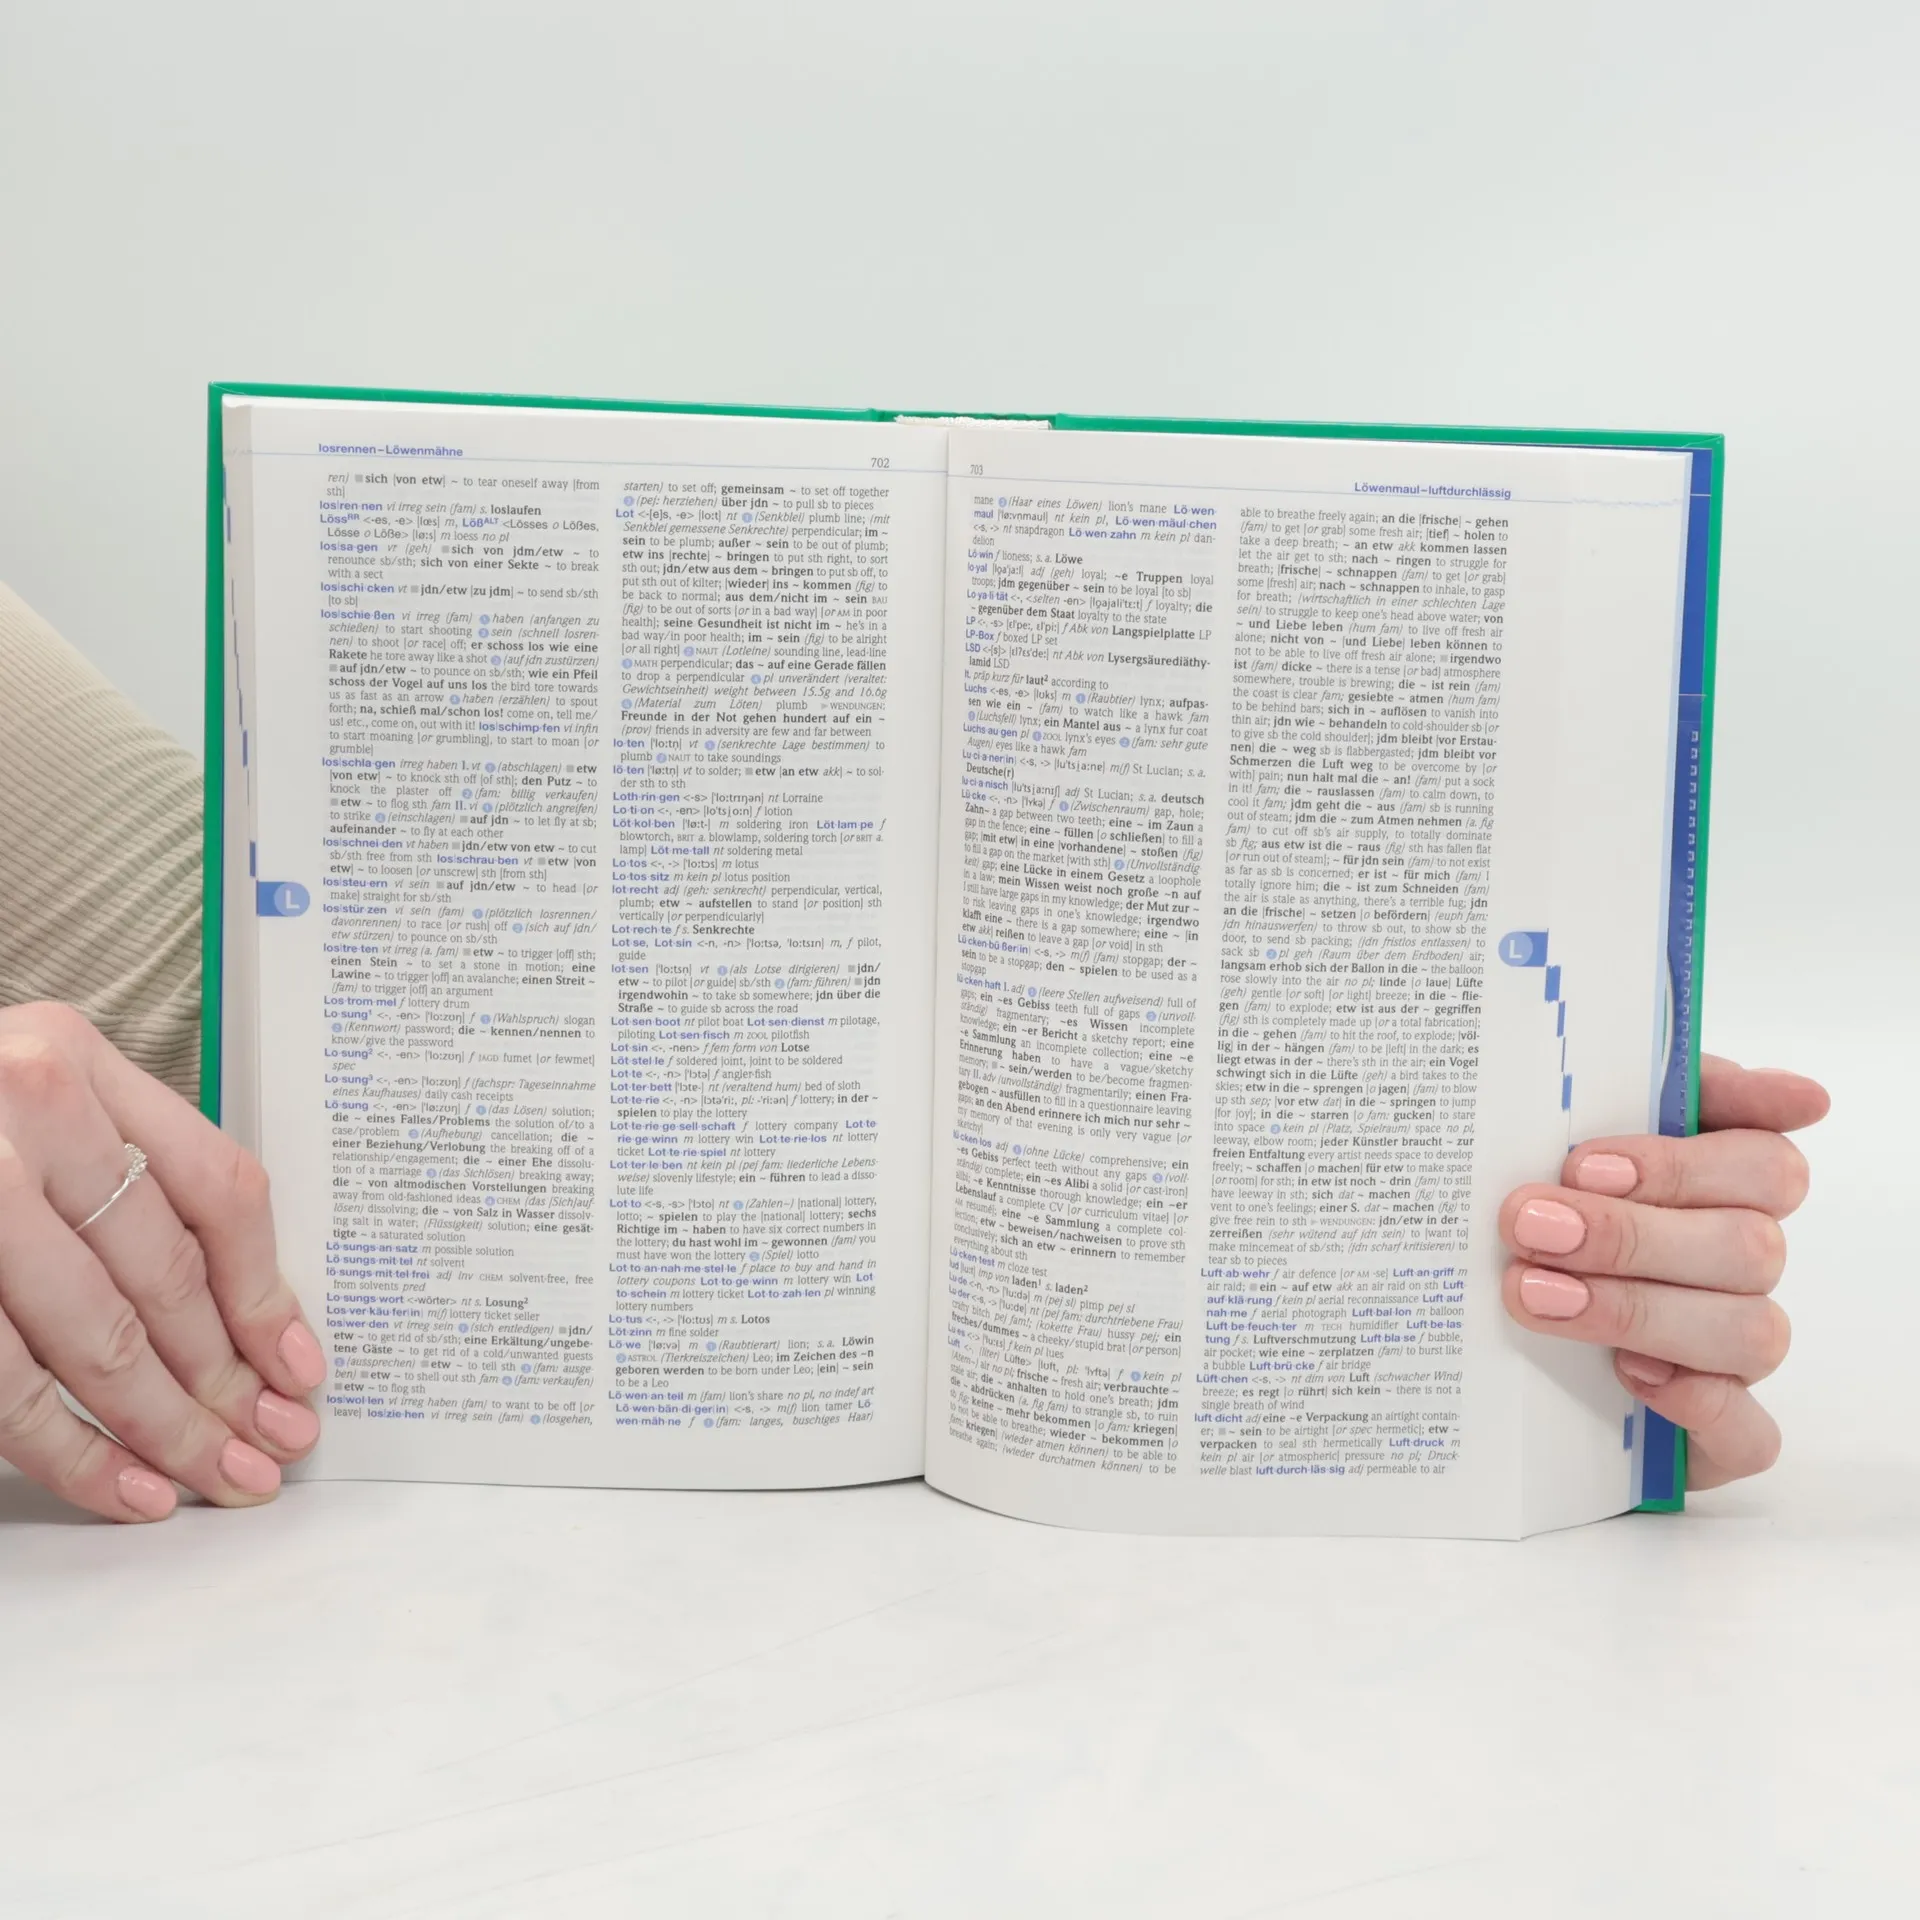 losrennen–Löwenmähne
702
ren) ■ sich [von etw] ~ to tear oneself away [from
sth]
los|ren·nen vi irreg sein (fam) s. loslaufen
Lössᴿᴿ <-es, -e> [lœs] m, Lößᴬᴸᵀ <Lösses o Lößes,
Lösse o Löße> [lø:s] m loess no pl
los|sa·gen vr (geh) ■ sich von jdm/etw ~ to
renounce sb/sth; sich von einer Sekte ~ to break
with a sect
los|schi·cken vt ■ jdn/etw [zu jdm] ~ to send sb/sth
[to sb]
los|schie·ßen vi irreg (fam) ① haben (anfangen zu
schießen) to start shooting ② sein (schnell losren-
nen) to shoot [or race] off; er schoss los wie eine
Rakete he tore away like a shot ③ (auf jdn zustürzen)
■ auf jdn/etw ~ to pounce on sb/sth; wie ein Pfeil
schoss der Vogel auf uns los the bird tore towards
us as fast as an arrow ④ haben (erzählen) to spout
forth; na, schieß mal/schon los! come on, tell me/
us! etc., come on, out with it! los|schimp·fen vi infin
to start moaning [or grumbling], to start to moan [or
grumble]
los|schla·gen irreg haben I. vt ① (abschlagen) ■ etw
[von etw] ~ to knock sth off [of sth]; den Putz ~ to
knock the plaster off ② (fam: billig verkaufen)
■ etw ~ to flog sth fam II. vi ① (plötzlich angreifen)
to strike ② (einschlagen) ■ auf jdn ~ to let fly at sb;
aufeinander ~ to fly at each other
los|schnei·den vt haben ■ jdn/etw von etw ~ to cut
sb/sth free from sth los|schrau·ben vt ■ etw [von
etw] ~ to loosen [or unscrew] sth [from sth]
los|steu·ern vi sein ■ auf jdn/etw ~ to head [or
make] straight for sb/sth
los|stür·zen vi sein (fam) ① (plötzlich losrennen/
davonrennen) to race [or rush] off ② (sich auf jdn/
etw stürzen) to pounce on sb/sth
los|tre·ten vt irreg (a. fam) ■ etw ~ to trigger [off] sth;
einen Stein ~ to set a stone in motion; eine
Lawine ~ to trigger [off] an avalanche; einen Streit ~
(fam) to trigger [off] an argument
Los·trom·mel f lottery drum
Lo·sung¹ <-, -en> ['lo:zʊŋ] f ① (Wahlspruch) slogan
② (Kennwort) password; die ~ kennen/nennen to
know/give the password
Lo·sung² <-, -en> ['lo:zʊŋ] f JAGD fumet [or fewmet]
spec
Lo·sung³ <-, -en> ['lo:zʊŋ] f (fachspr: Tageseinnahme
eines Kaufhauses) daily cash receipts
Lö·sung <-, -en> ['lø:zʊŋ] f ① (das Lösen) solution;
die ~ eines Falles/Problems the solution of/to a
case/problem ② (Aufhebung) cancellation; die ~
einer Beziehung/Verlobung the breaking off of a
relationship/engagement; die ~ einer Ehe dissolu-
tion of a marriage ③ (das Sichlösen) breaking away;
die ~ von altmodischen Vorstellungen breaking
away from old-fashioned ideas ④ CHEM (das [Sich]auf-
lösen) dissolving; die ~ von Salz in Wasser dissolv-
ing salt in water; (Flüssigkeit) solution; eine gesät-
tigte ~ a saturated solution
Lö·sungs·an·satz m possible solution
Lö·sungs·mit·tel nt solvent
lö·sungs·mit·tel·frei adj inv CHEM solvent-free, free
from solvents pred
Lo·sungs·wort <-wörter> nt s. Losung²
Los·ver·käu·fer(in) m(f) lottery ticket seller
los|wer·den vt irreg sein ① (sich entledigen) ■ jdn/
etw ~ to get rid of sb/sth; eine Erkältung/ungebe-
tene Gäste ~ to get rid of a cold/unwanted guests
② (aussprechen) ■ etw ~ to tell sth ③ (fam: ausge-
ben) ■ etw ~ to shell out sth fam ④ (fam: verkaufen)
■ etw ~ to flog sth
los|wol·len vi irreg haben (fam) to want to be off [or
leave] los|zie·hen vi irreg sein (fam) ① (losgehen,
L
starten) to set off; gemeinsam ~ to set off together
② (pej: herziehen) über jdn ~ to pull sb to pieces
Lot <-[e]s, -e> [lo:t] nt ① (Senkblei) plumb line; (mit
Senkblei gemessene Senkrechte) perpendicular; im ~
sein to be plumb; außer ~ sein to be out of plumb;
etw ins [rechte] ~ bringen to put sth right, to sort
sth out; jdn/etw aus dem ~ bringen to put sb off, to
put sth out of kilter; [wieder] ins ~ kommen (fig) to
be back to normal; aus dem/nicht im ~ sein BAU
(fig) to be out of sorts [or in a bad way] [or AM in poor
health]; seine Gesundheit ist nicht im ~ he's in a
bad way/in poor health; im ~ sein (fig) to be alright
[or all right] ② NAUT (Lotleine) sounding line, lead-line
③ MATH perpendicular; das ~ auf eine Gerade fällen
to drop a perpendicular ④ pl unverändert (veraltet:
Gewichtseinheit) weight between 15.5g and 16.6g
⑤ (Material zum Löten) plumb ▶ WENDUNGEN:
Freunde in der Not gehen hundert auf ein ~
(prov) friends in adversity are few and far between
lo·ten ['lo:tn̩] vt ① (senkrechte Lage bestimmen) to
plumb ② NAUT to take soundings
lö·ten ['lø:tn̩] vt to solder; ■ etw [an etw akk] ~ to sol-
der sth to sth
Loth·rin·gen <-s> ['lo:trɪŋən] nt Lorraine
Lo·ti·on <-, -en> [lo'tsi̯o:n] f lotion
Löt·kol·ben ['lø:t-] m soldering iron Löt·lam·pe f
blowtorch, BRIT a. blowlamp, soldering torch [or BRIT a.
lamp] Löt·me·tall nt soldering metal
Lo·tos <-, -> ['lo:tɔs] m lotus
Lo·tos·sitz m kein pl lotus position
lot·recht adj (geh: senkrecht) perpendicular, vertical,
plumb; etw ~ aufstellen to stand [or position] sth
vertically [or perpendicularly]
Lot·rech·te f s. Senkrechte
Lot·se, Lot·sin <-n, -n> ['lo:tsə, 'lo:tsɪn] m, f pilot,
guide
lot·sen ['lo:tsn̩] vt ① (als Lotse dirigieren) ■ jdn/
etw ~ to pilot [or guide] sb/sth ② (fam: führen) ■ jdn
irgendwohin ~ to take sb somewhere; jdn über die
Straße ~ to guide sb across the road
Lot·sen·boot nt pilot boat Lot·sen·dienst m pilotage,
piloting Lot·sen·fisch m ZOOL pilotfish
Lot·sin <-, -nen> f fem form von Lotse
Löt·stel·le f soldered joint, joint to be soldered
Lot·te <-, -n> ['lɔtə] f angler-fish
Lot·ter·bett ['lɔtɐ-] nt (veraltend hum) bed of sloth
Lot·te·rie <-, -n> [lɔtə'ri:, pl: -'ri:ən] f lottery; in der ~
spielen to play the lottery
Lot·te·rie·ge·sell·schaft f lottery company Lot·te·
rie·ge·winn m lottery win Lot·te·rie·los nt lottery
ticket Lot·te·rie·spiel nt lottery
Lot·ter·le·ben nt kein pl (pej fam: liederliche Lebens-
weise) slovenly lifestyle; ein ~ führen to lead a disso-
lute life
Lot·to <-s, -s> ['lɔto] nt ① (Zahlen~) [national] lottery,
lotto; ~ spielen to play the [national] lottery; sechs
Richtige im ~ haben to have six correct numbers in
the lottery; du hast wohl im ~ gewonnen (fam) you
must have won the lottery ② (Spiel) lotto
Lot·to·an·nah·me·stel·le f place to buy and hand in
lottery coupons Lot·to·ge·winn m lottery win Lot·
to·schein m lottery ticket Lot·to·zah·len pl winning
lottery numbers
Lo·tus <-, -> ['lo:tʊs] m s. Lotos
Löt·zinn m fine solder
Lö·we ['lø:və] m ① (Raubtierart) lion; s. a. Löwin
② ASTROL (Tierkreiszeichen) Leo; im Zeichen des ~n
geboren werden to be born under Leo; [ein] ~ sein
to be a Leo
Lö·wen·an·teil m (fam) lion's share no pl, no indef art
Lö·wen·bän·di·ger(in) <-s, -> m(f) lion tamer Lö·
wen·mäh·ne f ① (fam: langes, buschiges Haar)
703
Löwenmaul–luftdurchlässig
mane ② (Haar eines Löwen) lion's mane Lö·wen·
maul ['lø:vn̩maul] nt kein pl, Lö·wen·mäul·chen
<-s, -> nt snapdragon Lö·wen·zahn m kein pl dan-
delion
Lö·win f lioness; s. a. Löwe
lo·yal [lo̯a'ja:l] adj (geh) loyal; ~e Truppen loyal
troops; jdm gegenüber ~ sein to be loyal [to sb]
Lo·ya·li·tät <-, <selten -en> [lo̯ajali'tɛ:t] f loyalty; die
~ gegenüber dem Staat loyalty to the state
LP <-, -s> [ɛl'pe:, ɛl'pi:] f Abk von Langspielplatte LP
LP-Box f boxed LP set
LSD <-[s]> [ɛl?ɛs'de:] nt Abk von Lysergsäurediäthy-
lamid LSD
lt. präp kurz für laut² according to
Luchs <-es, -e> [lʊks] m ① (Raubtier) lynx; aufpas-
sen wie ein ~ (fam) to watch like a hawk fam
② (Luchsfell) lynx; ein Mantel aus ~ a lynx fur coat
Luchs·au·gen pl ① ZOOL lynx's eyes ② (fam: sehr gute
Augen) eyes like a hawk fam
Lu·ci·a·ner(in) <-s, -> [lu'tsi̯a:nɐ] m(f) St Lucian; s. a.
Deutsche(r)
lu·ci·a·nisch [lu'tsi̯a:nɪʃ] adj St Lucian; s. a. deutsch
Lü·cke <-, -n> ['lʏkə] f ① (Zwischenraum) gap, hole;
Zahn~ a gap between two teeth; eine ~ im Zaun a
gap in the fence; eine ~ füllen [o schließen] to fill a
gap; [mit etw] in eine [vorhandene] ~ stoßen (fig)
to fill a gap on the market [with sth] ② (Unvollständig-
keit) gap; eine Lücke in einem Gesetz a loophole
in a law; mein Wissen weist noch große ~n auf
I still have large gaps in my knowledge; der Mut zur ~
to risk leaving gaps in one's knowledge; irgendwo
klafft eine ~ there is a gap somewhere; eine ~ [in
etw akk] reißen to leave a gap [or void] in sth
Lü·cken·bü·ßer(in) <-s, -> m(f) (fam) stopgap; der ~
sein to be a stopgap; den ~ spielen to be used as a
stopgap
lü·cken·haft I. adj ① (leere Stellen aufweisend) full of
gaps; ein ~es Gebiss teeth full of gaps ② (unvoll-
ständig) fragmentary; ~es Wissen incomplete
knowledge; ein ~er Bericht a sketchy report; eine
~e Sammlung an incomplete collection; eine ~e
Erinnerung haben to have a vague/sketchy
memory; ■ ~ sein/werden to be/become fragmen-
tary II. adv (unvollständig) fragmentarily; einen Fra-
gebogen ~ ausfüllen to fill in a questionnaire leaving
gaps; an den Abend erinnere ich mich nur sehr ~
my memory of that evening is only very vague [or
sketchy]
lü·cken·los adj ① (ohne Lücke) comprehensive; ein
~es Gebiss perfect teeth without any gaps ② (voll-
ständig) complete; ein ~es Alibi a solid [or cast-iron]
alibi; ~e Kenntnisse thorough knowledge; ein ~er
Lebenslauf a complete CV [or curriculum vitae] [or
AM resumé]; eine ~e Sammlung a complete col-
lection; etw ~ beweisen/nachweisen to prove sth
conclusively; sich an etw ~ erinnern to remember
everything about sth
Lü·cken·test m cloze test
lud [lu:t] imp von laden¹ s. laden²
Lu·de <-n, -n> ['lu:də] m (pej sl) pimp pej sl
Lu·der <-s, -> ['lu:dɐ] nt (pej fam: durchtriebene Frau)
crafty bitch pej fam!; (kokette Frau) hussy pej; ein
freches/dummes ~ a cheeky/stupid brat [or person]
Lu·es <-> ['lu:ɛs] f kein pl lues
Luft <-, (liter) Lüfte> [lʊft, pl: 'lʏftə] f ① kein pl
(Atem~) air no pl; frische ~ fresh air; verbrauchte ~
stale air; die ~ anhalten to hold one's breath; jdm
die ~ abdrücken (a. fig fam) to strangle sb, to ruin
sb fig; keine ~ mehr bekommen [o fam: kriegen]
to not be able to breathe; wieder ~ bekommen [o
fam: kriegen] (wieder atmen können) to be able to
breathe again; (wieder durchatmen können) to be
able to breathe freely again; an die [frische] ~ gehen
(fam) to get [or grab] some fresh air; [tief] ~ holen to
take a deep breath; ~ an etw akk kommen lassen
let the air get to sth; nach ~ ringen to struggle for
breath; [frische] ~ schnappen (fam) to get [or grab]
some [fresh] air; nach ~ schnappen to inhale, to gasp
for breath; (wirtschaftlich in einer schlechten Lage
sein) to struggle to keep one's head above water; von
~ und Liebe leben (hum fam) to live off fresh air
alone; nicht von ~ [und Liebe] leben können to
not to be able to live off fresh air alone; ■ irgendwo
ist (fam) dicke ~ there is a tense [or bad] atmosphere
somewhere, trouble is brewing; die ~ ist rein (fam)
the coast is clear fam; gesiebte ~ atmen (hum fam)
to be behind bars; sich in ~ auflösen to vanish into
thin air; jdn wie ~ behandeln to cold-shoulder sb [or
to give sb the cold shoulder]; jdm bleibt [vor Erstau-
nen] die ~ weg sb is flabbergasted; jdm bleibt vor
Schmerzen die Luft weg to be overcome by [or
with] pain; nun halt mal die ~ an! (fam) put a sock
in it! fam; die ~ rauslassen (fam) to calm down, to
cool it fam; jdm geht die ~ aus (fam) sb is running
out of steam; jdm die ~ zum Atmen nehmen (a. fig
fam) to cut off sb's air supply, to totally dominate
sb fig; aus etw ist die ~ raus (fig) sth has fallen flat
[or run out of steam]; ~ für jdn sein (fam) to not exist
as far as sb is concerned; er ist ~ für mich (fam) I
totally ignore him; die ~ ist zum Schneiden (fam)
the air is stale as anything, there's a terrible fug; jdn
an die [frische] ~ setzen [o befördern] (euph fam:
jdn hinauswerfen) to throw sb out, to show sb the
door, to send sb packing; (jdn fristlos entlassen) to
sack sb ② pl geh (Raum über dem Erdboden) air;
langsam erhob sich der Ballon in die ~ the balloon
rose slowly into the air no pl; linde [o laue] Lüfte
(geh) gentle [or soft] [or light] breeze; in die ~ flie-
gen (fam) to explode; etw ist aus der ~ gegriffen
(fig) sth is completely made up [or a total fabrication];
in die ~ gehen (fam) to hit the roof, to explode; [völ-
lig] in der ~ hängen (fam) to be [left] in the dark; es
liegt etwas in der ~ there's sth in the air; ein Vogel
schwingt sich in die Lüfte (geh) a bird takes to the
skies; etw in die ~ sprengen [o jagen] (fam) to blow
up sth sep; [vor etw dat] in die ~ springen to jump
[for joy]; in die ~ starren [o fam: gucken] to stare
into space ③ kein pl (Platz, Spielraum) space no pl,
leeway, elbow room; jeder Künstler braucht ~ zur
freien Entfaltung every artist needs space to develop
freely; ~ schaffen [o machen] für etw to make space
[or room] for sth; in etw ist noch ~ drin (fam) to still
have leeway in sth; sich dat ~ machen (fig) to give
vent to one's feelings; einer S. dat ~ machen (fig) to
give free rein to sth ▶ WENDUNGEN: jdn/etw in der ~
zerreißen (sehr wütend auf jdn sein) to [want to]
make mincemeat of sb/sth; (jdn scharf kritisieren) to
tear sb to pieces
Luft·ab·wehr f air defence [or AM -se] Luft·an·griff m
air raid; ■ ein ~ auf etw akk an air raid on sth Luft·
auf·klä·rung f kein pl aerial reconnaissance Luft·auf·
nah·me f aerial photograph Luft·bal·lon m balloon
Luft·be·feuch·ter m TECH humidifier Luft·be·las·
tung f s. Luftverschmutzung Luft·bla·se f bubble,
air pocket; wie eine ~ zerplatzen (fam) to burst like
a bubble Luft·brü·cke f air bridge
Lüft·chen <-s, -> nt dim von Luft (schwacher Wind)
breeze; es regt [o rührt] sich kein ~ there is not a
single breath of wind
luft·dicht adj eine ~e Verpackung an airtight contain-
er; ■ ~ sein to be airtight [or spec hermetic]; etw ~
verpacken to seal sth hermetically Luft·druck m
kein pl air [or atmospheric] pressure no pl; Druck-
welle blast luft·durch·läs·sig adj permeable to air
L